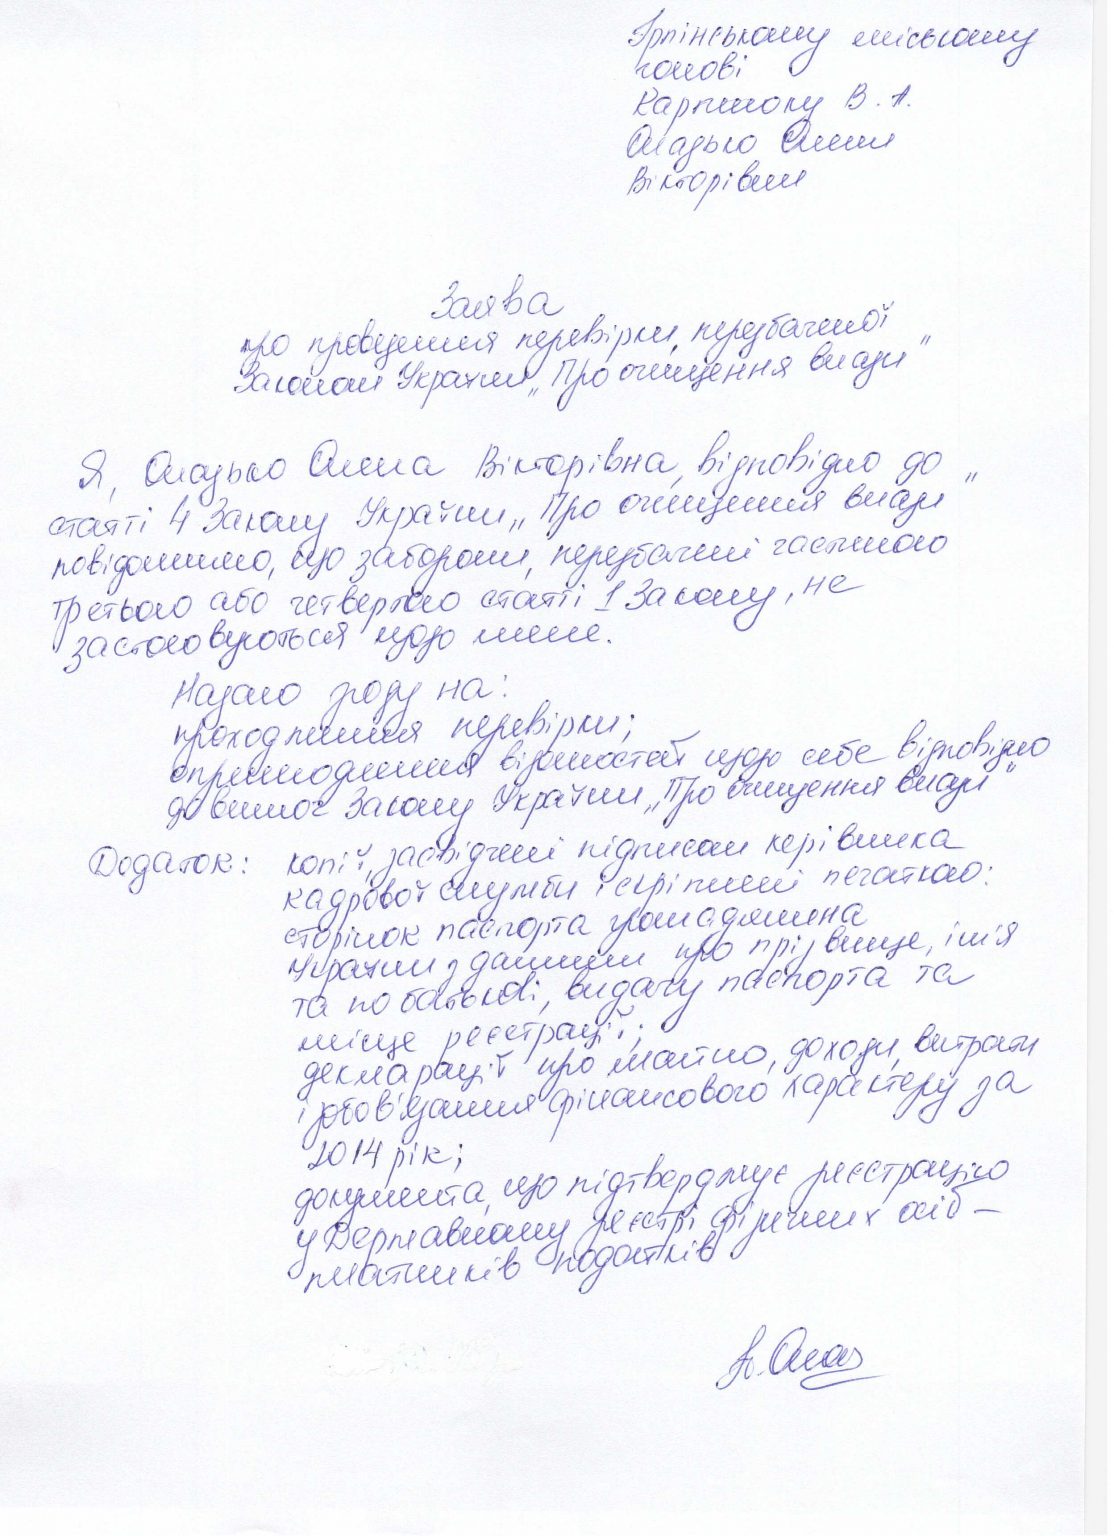 Ірпінському міському
голові
Карплюку В. А.
Оладько Олени
Вікторівни
Заява
про проведення перевірки, передбаченої
Законом України „Про очищення влади"
Я, Оладько Олена Вікторівна, відповідно до
статті 4 Закону України „Про очищення влади"
повідомляю, що заборони, передбачені частиною
третьою або четвертою статті 1 Закону, не
застосовуються щодо мене.
Надаю згоду на:
проходження перевірки;
оприлюднення відомостей щодо себе відповідно
до вимог Закону України „Про очищення влади"
Додаток: копії, засвідчені підписом керівника
кадрової служби і скріплені печаткою:
сторінок паспорта громадянина
України з даними про прізвище, ім'я
та по батькові, видачу паспорта та
місце реєстрації;
декларації про майно, доходи, витрати
і зобов'язання фінансового характеру за
2014 рік;
документа, що підтверджує реєстрацію
у Державному реєстрі фізичних осіб –
платників податків